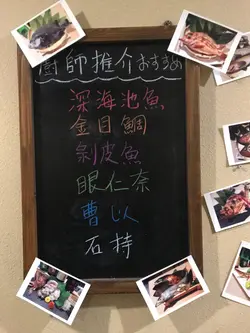 廚師推介おすすめ
深海池魚
金目鯛
剝皮魚
眼仁奈
曹以
石持